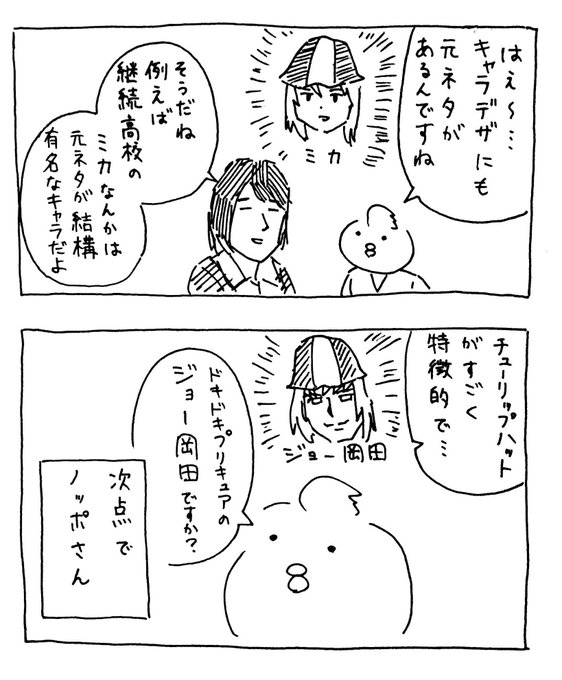 はぇ～…
キャラデザにも
元ネタが
あるんですね
ミカ
そうだね
例えば
継続高校の
ミカなんかは
元ネタが結構
有名なキャラだよ
チューリップハット
がすごく
特徴的で…
ジョー岡田
ドキドキプリキュアの
ジョー岡田ですか?
次点で
ノッポさん